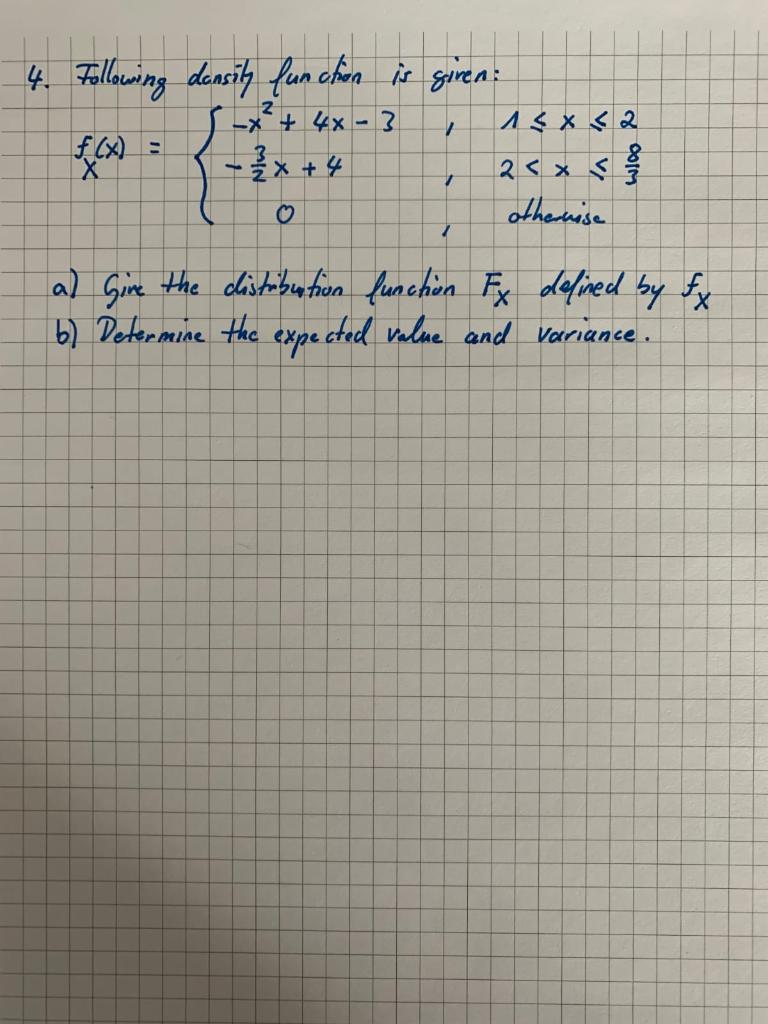 4. Following density function is given:
f_X(x) = { -x² + 4x - 3 , 1 ≤ x ≤ 2
-3/2 x + 4 , 2 < x ≤ 8/3
0 , otherwise
a) Give the distribution function F_X defined by f_X
b) Determine the expected value and variance.